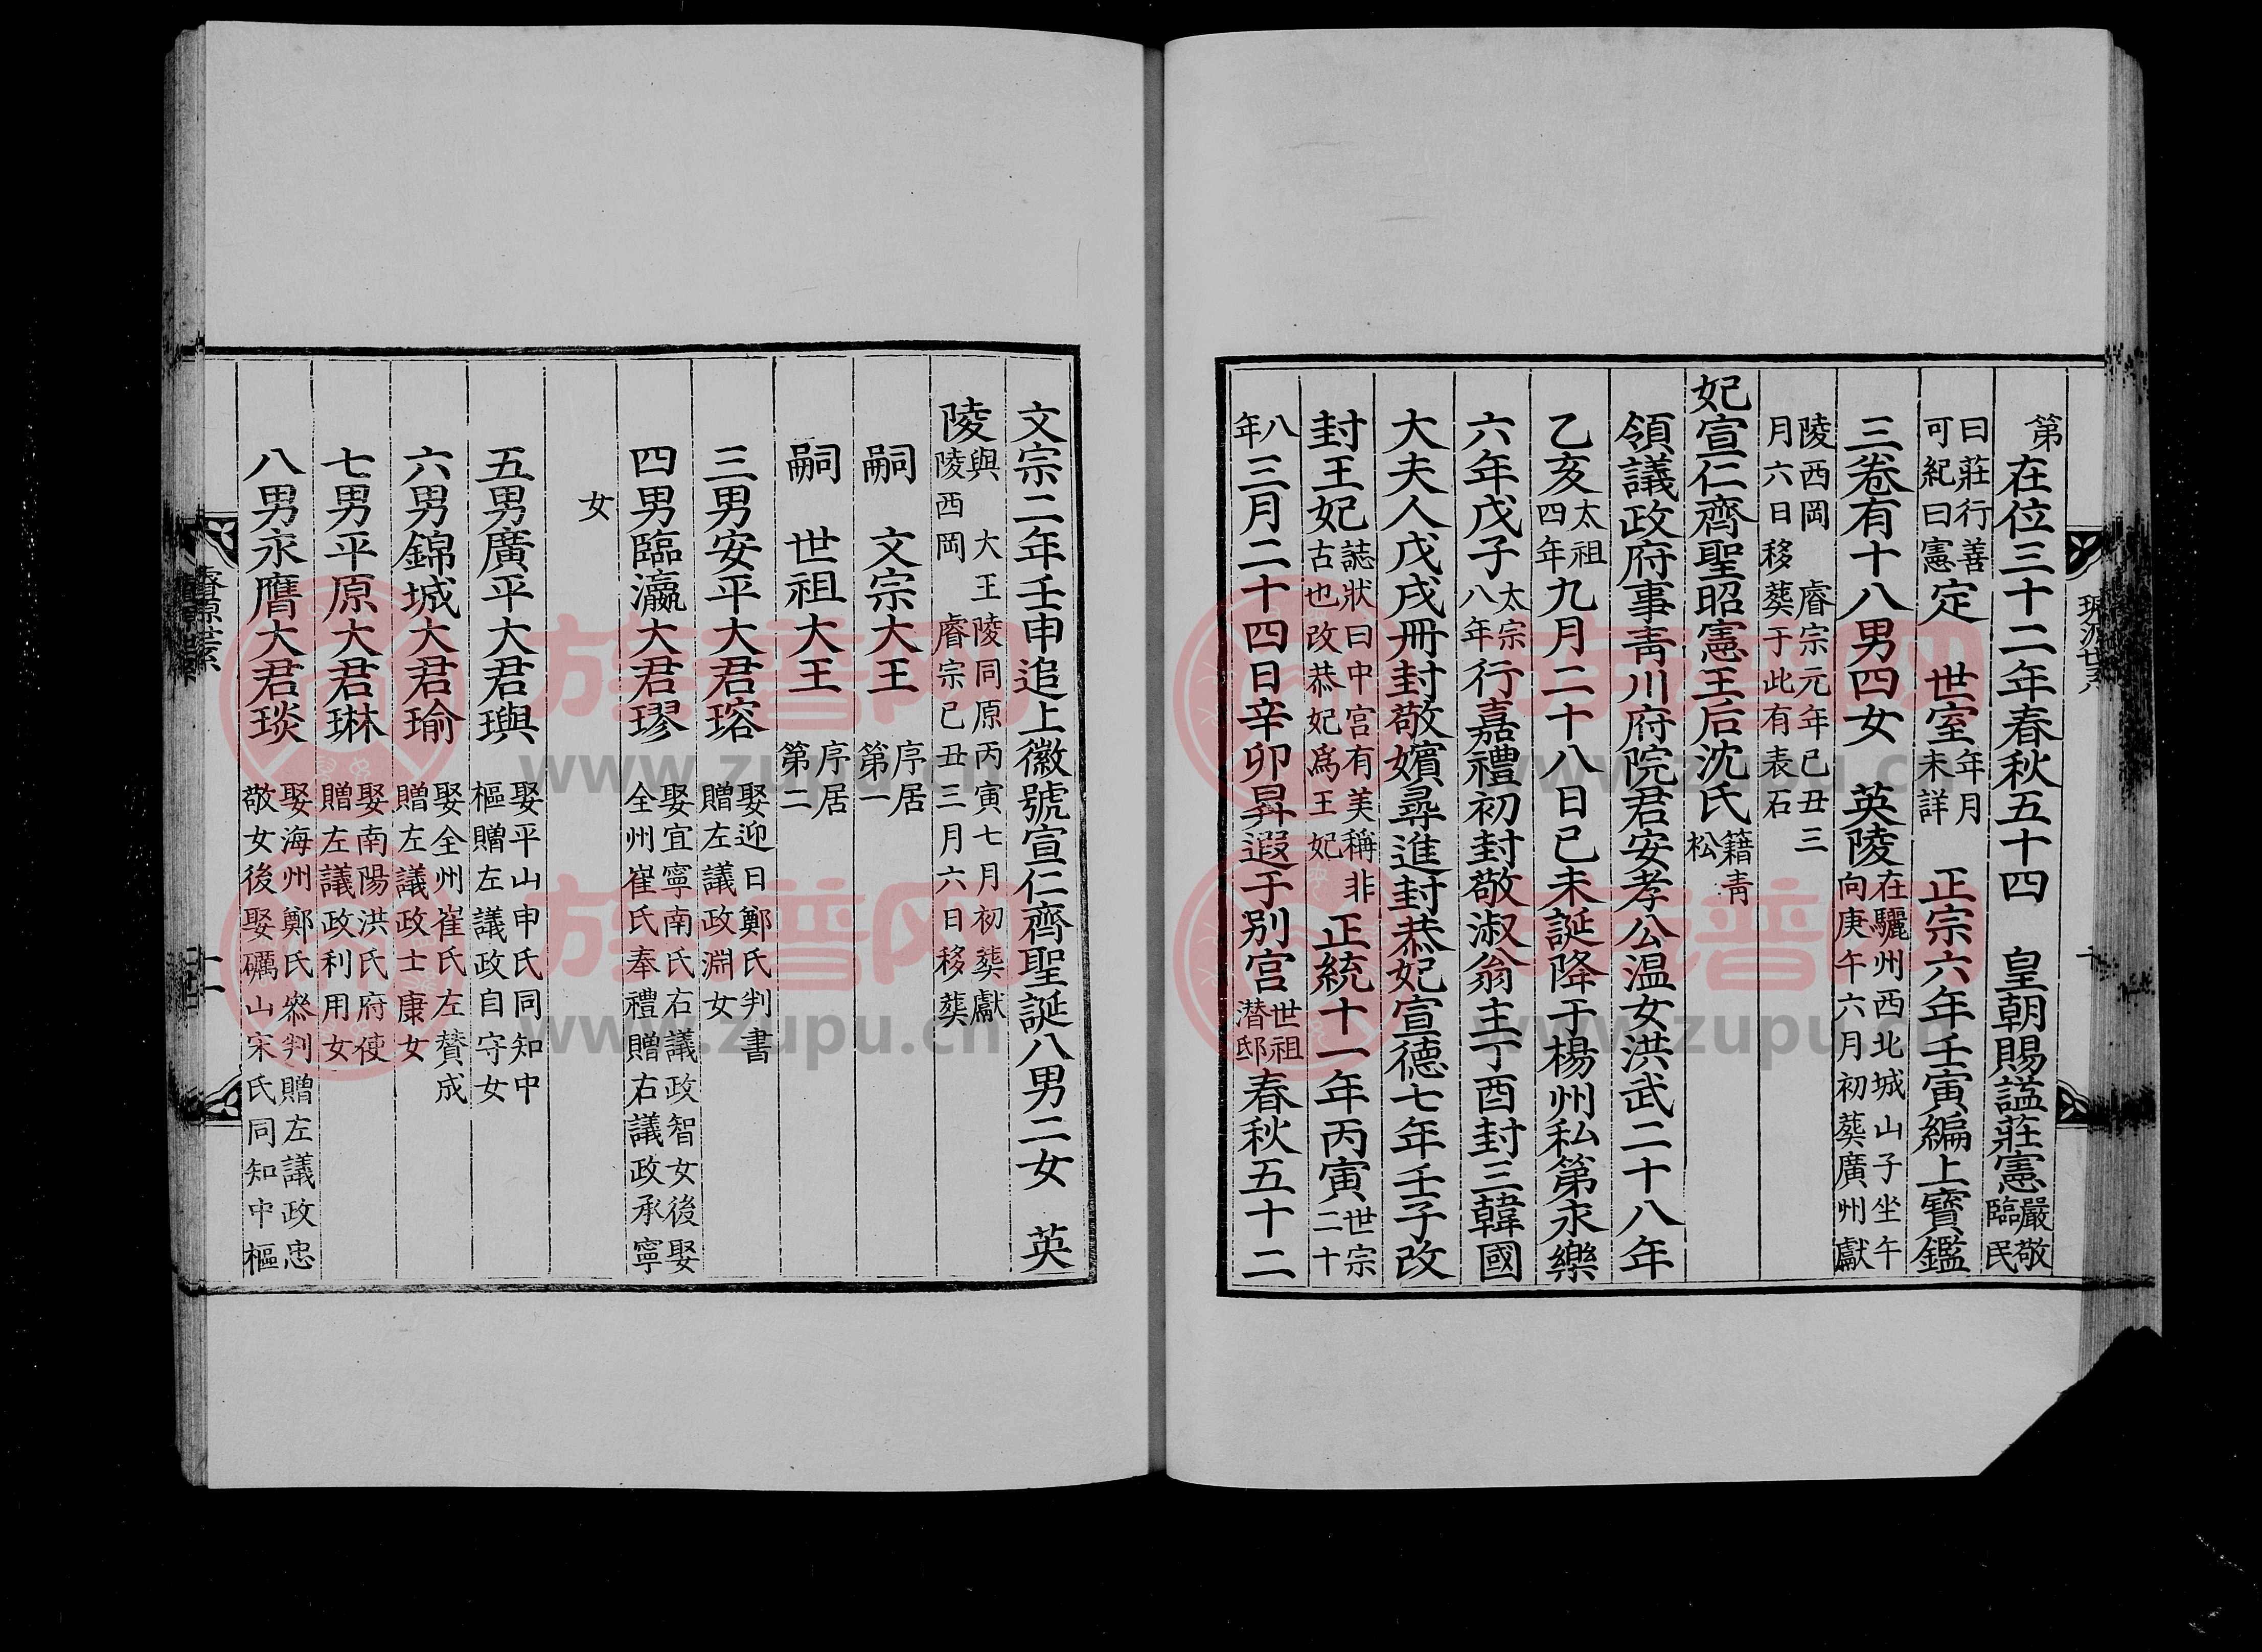 第
在位三十二年春秋五十四　皇朝賜諡莊憲嚴敬臨民
曰莊行善可紀曰憲定　世室年月未詳　正宗六年壬寅編上寶鑑
三卷有十八男四女　英陵在驪州西北城山子坐午向庚午六月初葬廣州獻
陵西岡　睿宗元年己丑三月六日移葬于此有表石
妃宣仁齊聖昭憲王后沈氏籍靑松
領議政府事靑川府院君安孝公温女洪武二十八年
乙亥太祖四年九月二十八日己未誕降于楊州私第永樂
六年戊子太宗八年行嘉禮初封敬淑翁主丁酉封三韓國
大夫人戊戌冊封敬嬪尋進封恭妃宣德七年壬子改
封王妃誌狀曰中宮有美稱非古也改恭妃爲王妃正統十一年丙寅世宗二十
八年三月二十四日辛卯昇遐于別宮世祖潜邸春秋五十二
文宗二年壬申追上徽號宣仁齊聖誕八男二女　英
陵與　大王陵同原丙寅七月初葬獻陵西岡　睿宗己丑三月六日移葬
嗣　文宗大王序居第一
嗣　世祖大王序居第二
三男安平大君瑢娶迎日鄭氏判書贈左議政淵女
四男臨瀛大君璆娶宜寧南氏右議政智女後娶全州崔氏奉禮贈右議政承寧
女
五男廣平大君璵娶平山申氏同知中樞贈左議政自守女
六男錦城大君瑜娶全州崔氏左贊成贈左議政士康女
七男平原大君琳娶南陽洪氏府使贈左議政利用女
八男永膺大君琰娶海州鄭氏叅判贈左議政忠敬女後娶礪山宋氏同知中樞
璿源世系
十一
族譜网
www.zupu.cn
族譜网
www.zupu.cn
族譜网
www.zupu.cn
族譜网
www.zupu.cn